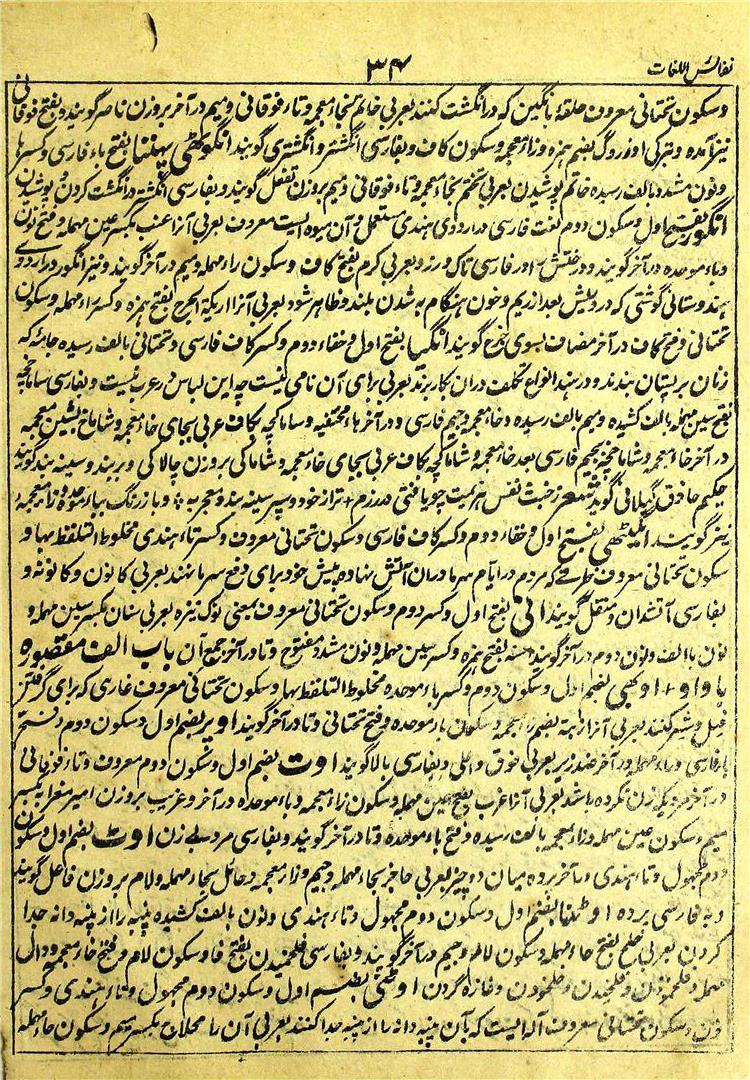 نفائس اللغات
۳۴
وسکون تحتانی معروف حلقهٔ بانگین که در انگشت کنند بعربی خاتم بخاء معجمه و تاء فوقانی و میم در آخر بروزن ناصر گویند و بفتح فوقانی
نیز آمده و بترکی اوزوک بضم همزه و زاء معجمه و سکون کاف و بفارسی انگشتر و انگشتری گویند انگوٹھی پہننا بفتح باء فارسی و کسر ها
و نون مشدد بالف رسیده خاتم پوشیدن بعربی تختم بخاء معجمه و تاء فوقانی و میم بروزن تفعل گویند و بفارسی انگشتر در انگشت کردن و پوشیدن
انگور بفتح اول و سکون دوم لغت فارسی در اردوی هندی مستعمل و آن میوه ایست معروف بعربی آنرا عنب بکسر عین مهمله و فتح نون
و باء موحده در آخر گویند و درختش را در فارسی تاک و رز و بعربی کرم بفتح کاف و سکون راء مهمله و میم در آخر گویند و نیز انگور در اردوی
هندوستانی گوشتی که در ریش بعد از ریم و خون هنگام به شدن بلند و ظاهر شود بعربی آنرا اریکة الجرح بفتح همزه و کسر راء مهمله و سکون
تحتانی و فتح کاف در آخر مضاف بسوی جرح گویند انگیا بفتح اول و خفاء دوم و کسر کاف فارسی و تحتانی بالف رسیده جامه که
زنان بر پستان بندند و در هند انواع تکلف در آن کار برند بعربی برای آن نامی نیست چه این لباس در عرب نیست و بفارسی ساماخچه
بفتح سین مهمله بالف کشیده و میم بالف رسیده و خاء معجمه و جیم فارسی و در آخر هاء مختفیه و ساماکچه بکاف عربی بجای خاء معجمه و شاماخ بشین معجمه
در آخر خاء معجمه و شاماخچه بجیم فارسی بعد خاء معجمه و شاماکچه بکاف عربی بجای خاء معجمه و شاماکی بروزن چالاکی و بربند و سینه بند گویند
حکیم حاذق گیلانی گوید شعر ز خبث نفس هزیمت چو یافتی در رزم + تراز خود و سپر سینه بند و معجر به
نیز گویند انگیٹھی بفتح اول و خفاء دوم و کسر کاف فارسی و سکون تحتانی معروف و کسر تاء هندی مخلوط التلفظ بها و
سکون تحتانی معروف ظرفی که مردم در ایام سرما در آن آتش نهاده پیش خود برای دفع سرما نهند بعربی کانون و کانونه و
بفارسی آتشدان و منقل گویند انی بفتح اول و کسر دوم و سکون تحتانی معروف بمعنی نوک نیزه بعربی سنان بکسر سین مهمله و
نون بالف و نون دوم در آخر گویند اسنه بفتح همزه و کسر سین مهمله و نون مشدد مفتوح و تا در آخر جمع آن باب الف مقصوره
با واو + اوبھی بضم اول و سکون دوم و کسر باء موحده مخلوط التلفظ بها و سکون تحتانی معروف غاری که برای گرفتن
فیل و شیر کنند بعربی آنرا زبیه بضم زاء معجمه و سکون باء موحده و فتح تحتانی و تا در آخر گویند اوپر بضم اول و سکون دوم و فتح
باء فارسی و راء مهمله در آخر ضد زیر بعربی فوق و اعلی و بفارسی بالا گویند اوت بضم اول و سکون دوم معروف و تاء فوقانی
در آخر مردیکه زن نکرده باشد بعربی آنرا عزب بفتح عین مهمله و سکون زاء معجمه و باء موحده در آخر و عزیب بروزن امیر معزابه بکسر
میم و سکون عین مهمله و زاء معجمه بالف رسیده و فتح باء موحده و تا در آخر گویند و بفارسی مرد بی زن اوٹ بضم اول و سکون
دوم مجهول و تاء هندی در آخر پرده میان دو چیز بعربی حاجز بحاء مهمله و جیم و زاء معجمه و حائل بحاء مهمله و لام بروزن فاعل گویند
و به فارسی پرده اوٹنا بضم اول و سکون دوم مجهول و تاء هندی و نون بالف کشیده پنبه را از پنبه دانه جدا
کردن بعربی حلج بفتح حاء مهمله و سکون لام و جیم در آخر گویند و بفارسی فلخمیدن بفتح فا و سکون لام و فتح خاء معجمه و دال
مهمله و فلخیدن و فلخودن و غازه کردن اوٹنی بضم اول و سکون دوم مجهول و تاء هندی و کسر
نون و سکون تحتانی معروف آله ایست که بآن پنبه دانه را از پنبه جدا کنند بعربی آن را محلاج بکسر میم و سکون حاء مهمله